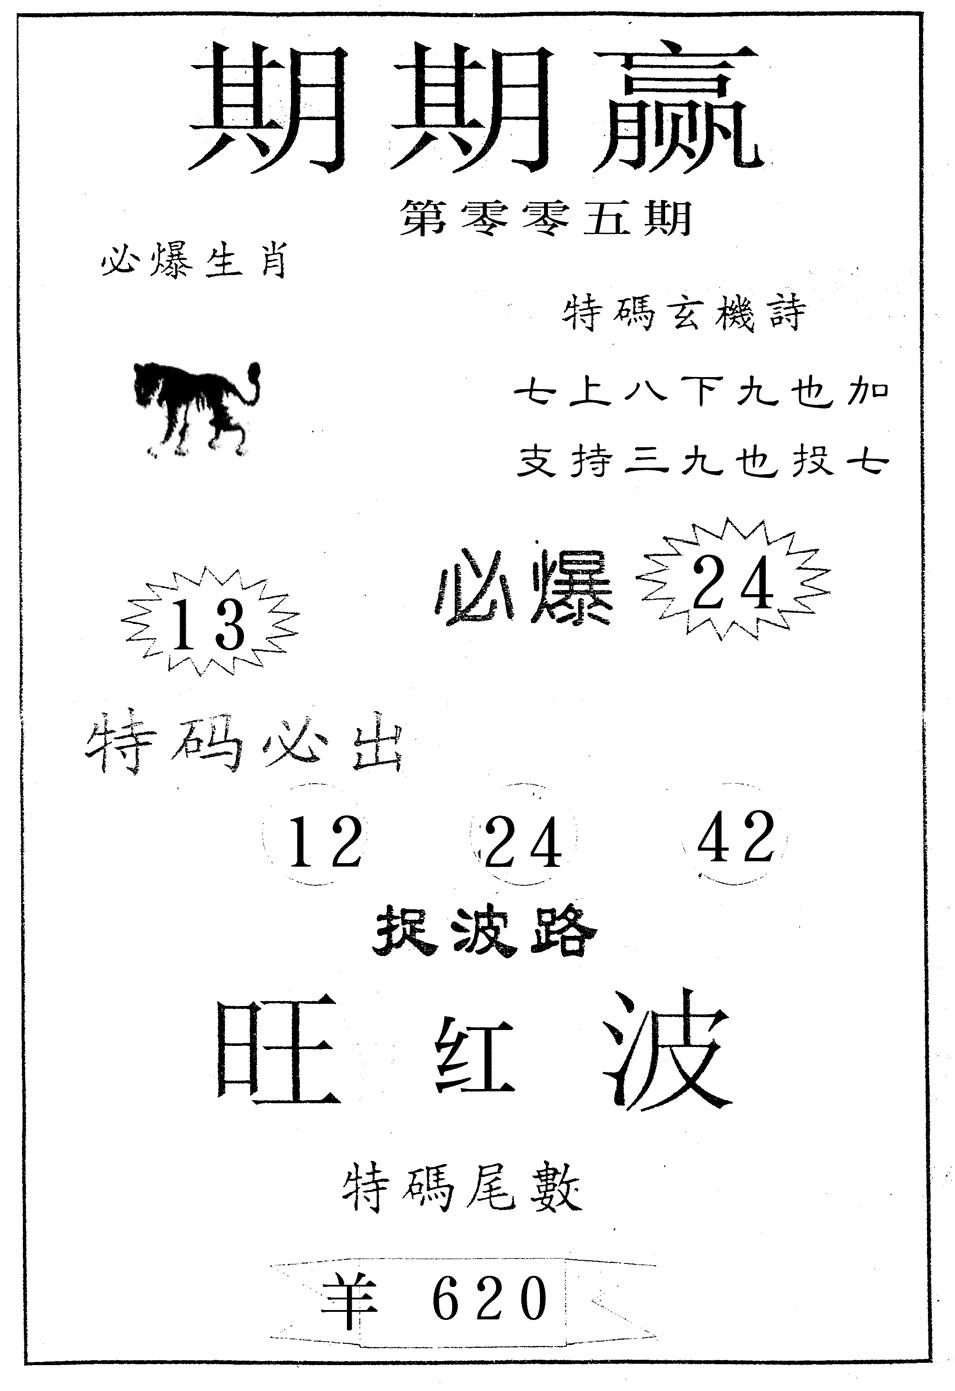 期期赢
第零零五期
必爆生肖
特碼玄機詩
七上八下九也加
支持三九也投七
必爆 24
13
特码必出
12 24 42
捉波路
旺红波
特碼尾數
羊 620